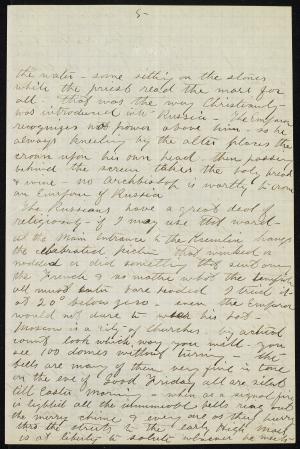 5-
the water - some sitting on the stones
while the priest read the mass for
all. That was the way Christianity
was introduced into Russia - The Emperor
recognizes no power above him - so he
always kneeling by the alter places the
crown upon his own head - then passing
behind the screen takes the holy bread
& wine - no Archbishop is worthy to crown
an Emperor of Russia
The Russians have a great deal of
religiosity - if I may use that word -
at the main entrance to the Kremlin hangs
the celebrated picture that winked or
nodded or did something that sent away
the French & no matter what the temperature
all must enter bare headed I tried it
at 20° below zero - even the Emperor
would not dare to wear his hat -
Moscow is a "city of churches" by actual
count look which way you will - you
see 100 domes without turning - the
bells are many of them very fine in tone
on the eve of Good Friday all are silent
till Easter morning - when as a signal fire
is lighted all the innumerable bells ring out
the merry chime & every one as they hurry
thro the streets to the early High Mass
is at liberty to salute whoever he meets